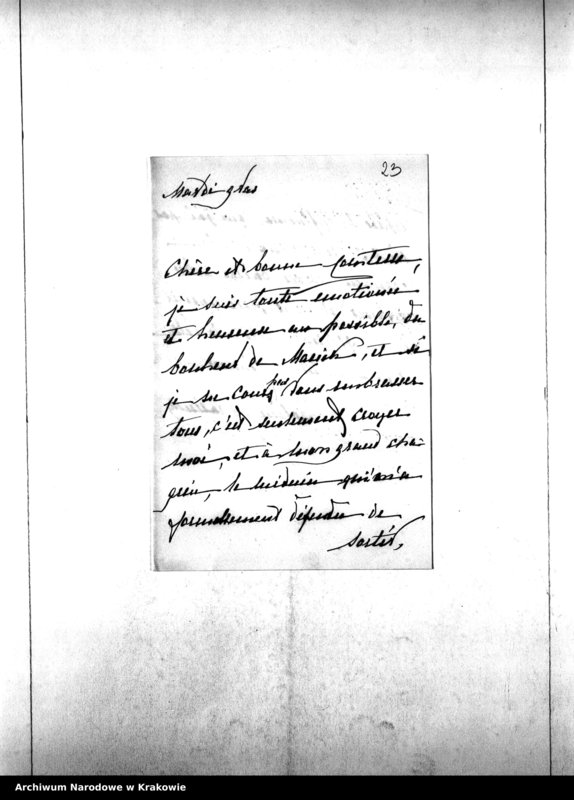 23
Mardi gras
Chère et bonne Comtesse,
je suis toute émotionée
et heureuse au possible, du
bonheur de Maniek, et si
je ne cours pas Vous embrasser
tous, c'est seulement croyez
moi, et à mon grand cha-
grin, le médecin qui m'a
formellement défendu de
sortir,
Archiwum Narodowe w Krakowie